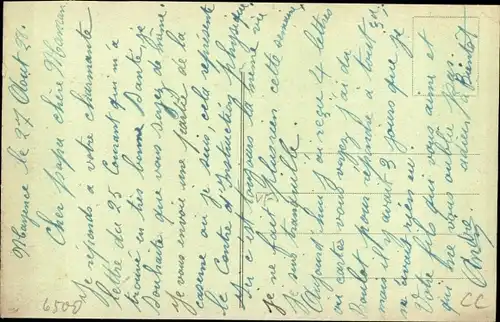 Mayence le 27 Août 28.
Cher papa chère Maman
Je réponds à votre charmante
lettre du 25 courant qui m'a
trouvé en très bonne santé, je
souhaite que vous soyez de même.
Je vous envoi une partie de la
caserne ou je suis, cela représente
le Centre d'Instruction physique
ici c'est toujours la même vie
je ne fait plus rien cette semaine
Je suis tranquille.
Aujourd'hui j'ai reçu 4 lettres
ou cartes vous voyez j'ai du
Boulot pour répondre à tout ça,
mais il y avait 3 jours que je
n'avais rien eu.
Votre fils qui vous aime et
qui ne vous oublie pas.
adieu, Bientôt
André
6500
CC